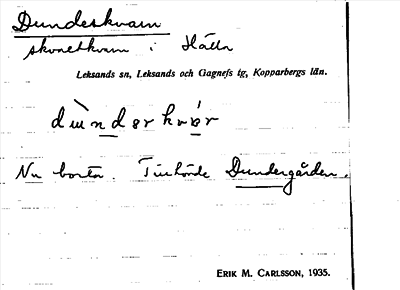 Dundeskvarn
skvaltkvarn i Hälla
Leksands sn, Leksands och Gagnefs tg, Kopparbergs län.
Nu borta. Tillhörde Dundergården.
ERIK M. CARLSSON, 1935.